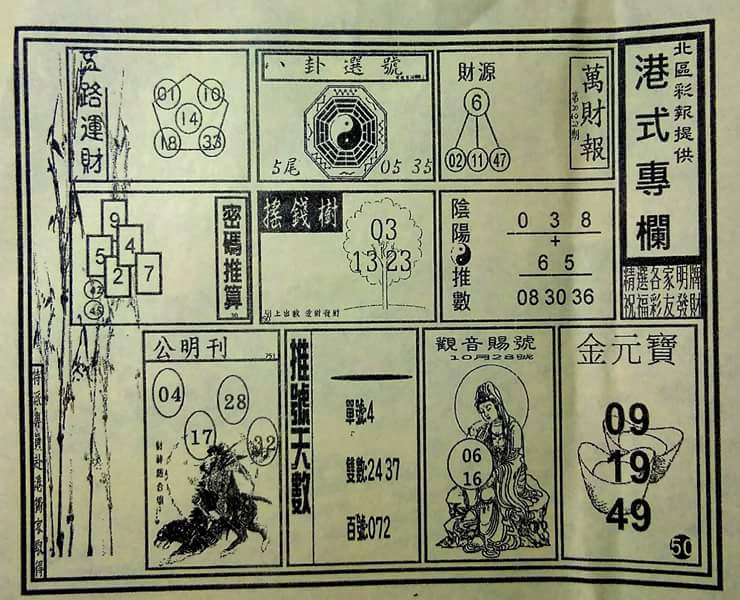 北區彩報提供
港式專欄
精選各家明牌
祝福彩友發財
萬財報
財源
6
02 11 47
八卦選號
5尾
05 35
五路運財
01 10
14
18 33
陰陽推數
0 3 8
+
6 5
08 30 36
搖錢樹
03
13 23
密碼推算
9
5 4
2 7
42
46
金元寶
09
19
49
50
觀音賜號
10月28號
06
16
推號天數
單號:4
雙數:24 37
百號:072
公明刊
751
04
28
17
32